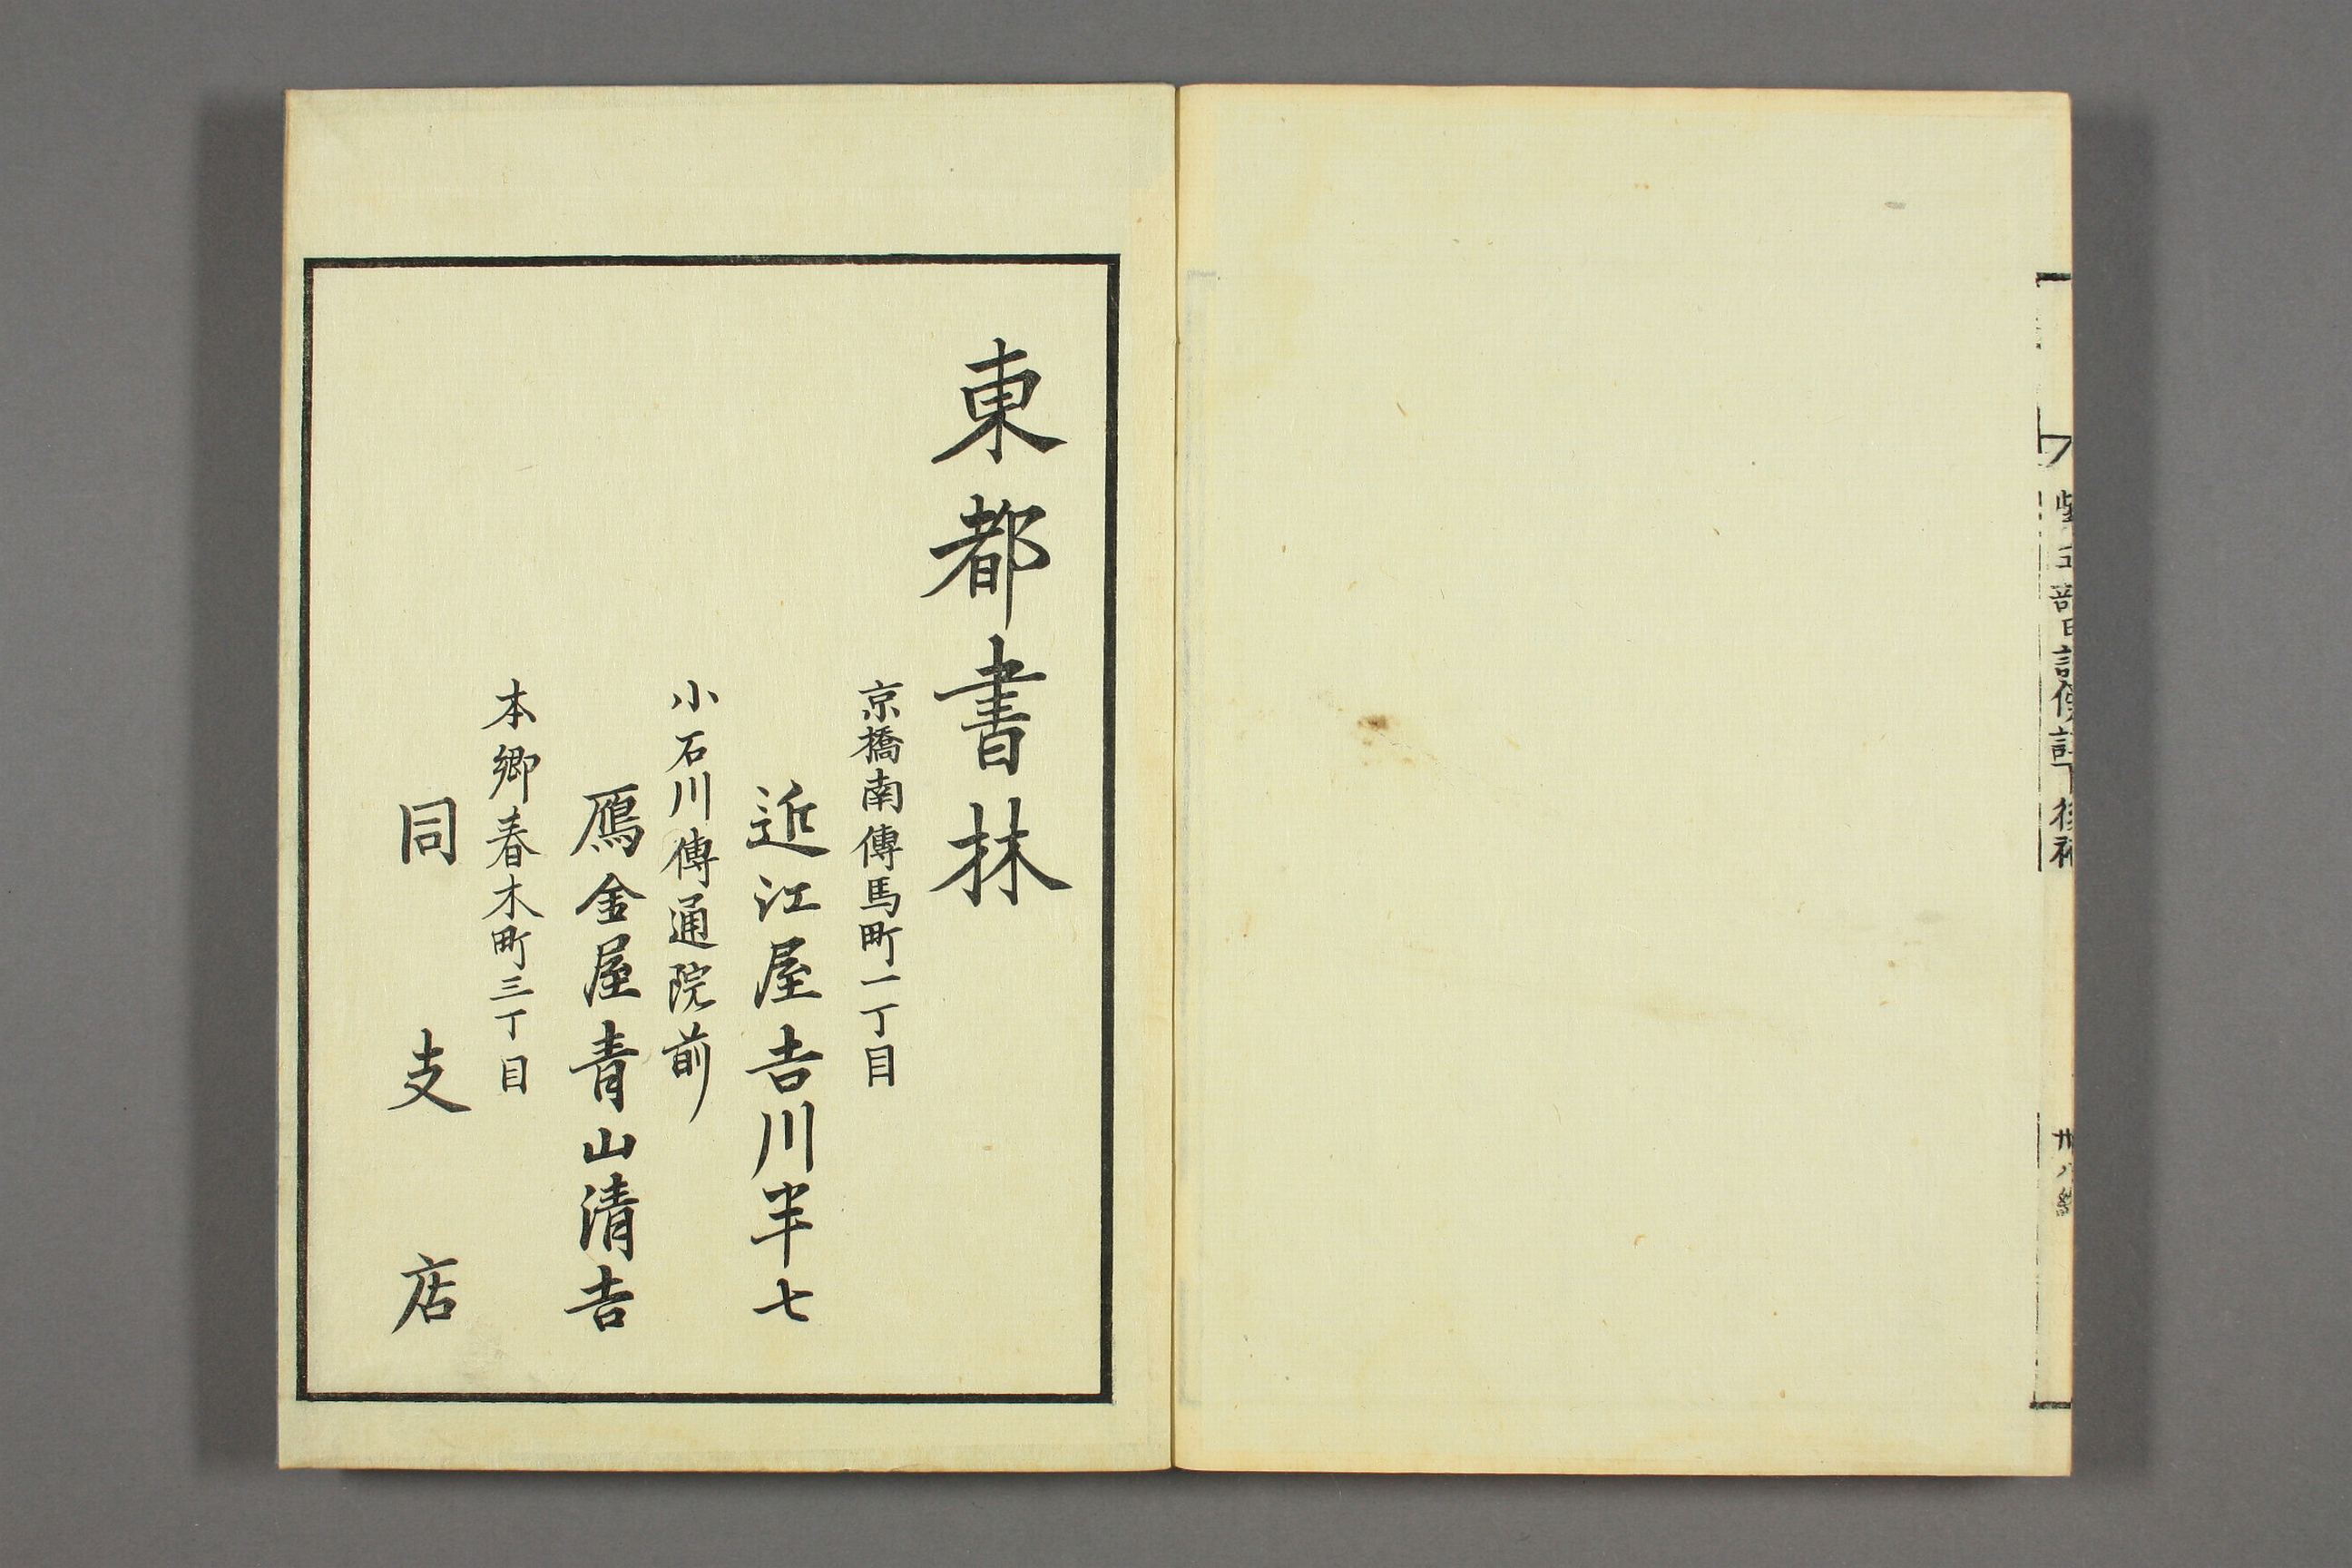 紫式部日記傍註下
卅八終
東都書林
京橋南傳馬町一丁目
近江屋吉川半七
小石川傳通院前
鴈金屋青山清吉
本郷春木町三丁目
同支店